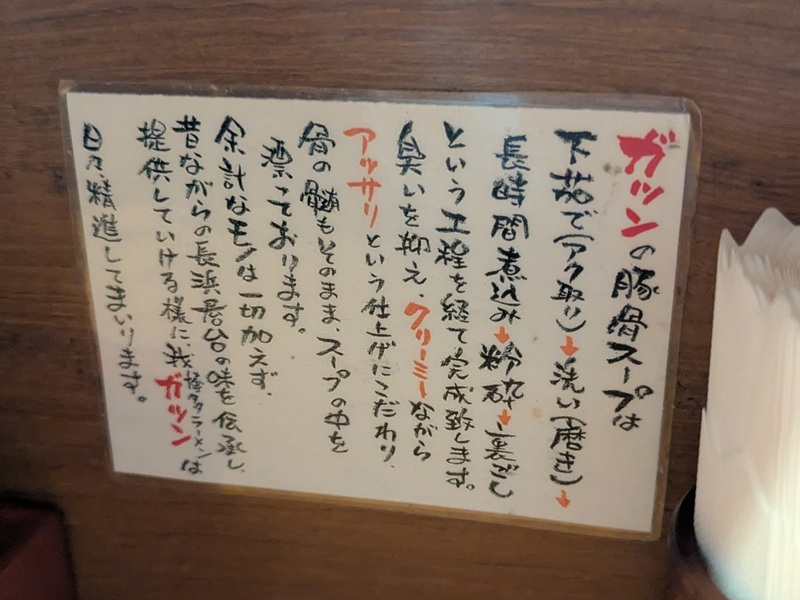 ガツンの豚骨スープは
下茹で(アク取り)→洗い(磨き)→
長時間煮込み→粉砕→裏ごし
という工程を経て完成致します。
臭いを抑え、クリーミーながら
アッサリという仕上げにこだわり、
骨の髄もそのまま、スープの中を
漂っております。
余計なモノは一切加えず、
昔ながらの長浜屋台の味を伝承し、
提供していける様に、我博多ラーメンガツンは
日々、精進してまいります。